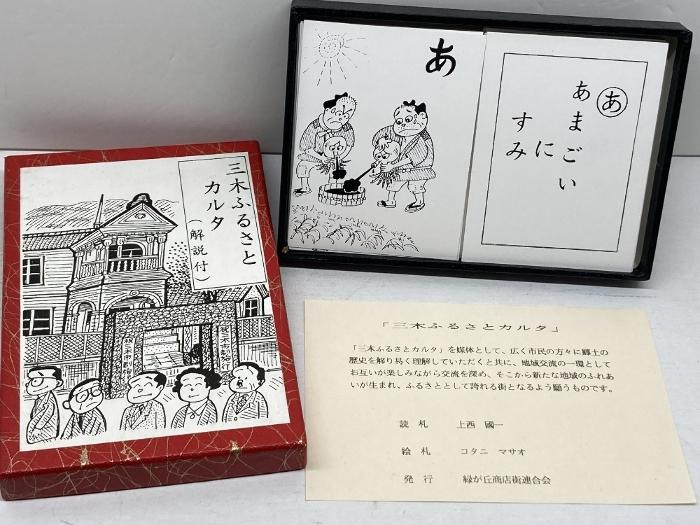 三木ふるさと
カルタ
（解説付）
あ
あ
あまごい
に
すみ
「三木ふるさとカルタ」
「三木ふるさとカルタ」を媒体として、広く市民の方々に郷土の
歴史を解り易く理解していただくと共に、地域交流の一環として
お互いが楽しみながら交流を深め、そこから新たな地域のふれあ
いが生まれ、ふるさととして誇れる街となるよう願うものです。
読札 上西 國一
絵札 コタニ マサオ
発行 緑が丘商店街連合会